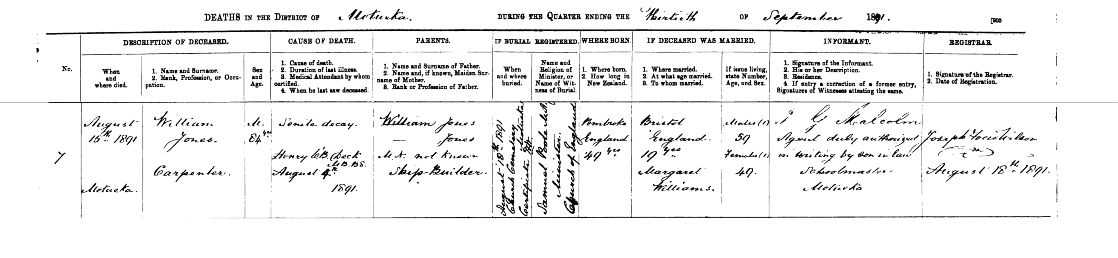 DEATHS IN THE DISTRICT OF Motueka. DURING THE QUARTER ENDING THE Thirtieth OF September 1891.
[900
No.
DESCRIPTION OF DECEASED.
When and where died.
1. Name and Surname.
2. Rank, Profession, or Occupation.
Sex and Age.
CAUSE OF DEATH.
1. Cause of death.
2. Duration of last illness.
3. Medical Attendant by whom certified.
4. When he last saw deceased.
PARENTS.
1. Name and Surname of Father.
2. Name and, if known, Maiden Surname of Mother.
3. Rank or Profession of Father.
IF BURIAL REGISTERED.
When and where buried.
Name and Religion of Minister, or Name of Witness of Burial.
WHERE BORN
1. Where born.
2. How long in New Zealand.
IF DECEASED WAS MARRIED.
1. Where married.
2. At what age married.
3. To whom married.
If issue living, state Number, Age, and Sex.
INFORMANT.
1. Signature of the Informant.
2. His or her Description.
3. Residence.
4. If entry a correction of a former entry, Signatures of Witnesses attesting the same.
REGISTRAR.
1. Signature of the Registrar.
2. Date of Registration.
7
August
15th 1891
Motueka.
William
Jones.
Carpenter.
M.
84 yrs
Senile decay.
Henry
August 4th
1891.
William Jones
— Jones
M.N. not known
Ship-Builder.
August 18th 1891
Cemetery
Samuel
Minister
Church of England
Pembroke
England
49 yrs
Bristol
England.
19 yrs
Margaret
Williams.
Males (1)
59
Females (1)
49.
G Malcolm
Agent duly authorized
in writing by son in law
Schoolmaster
Motueka
Joseph
August 18th 1891.